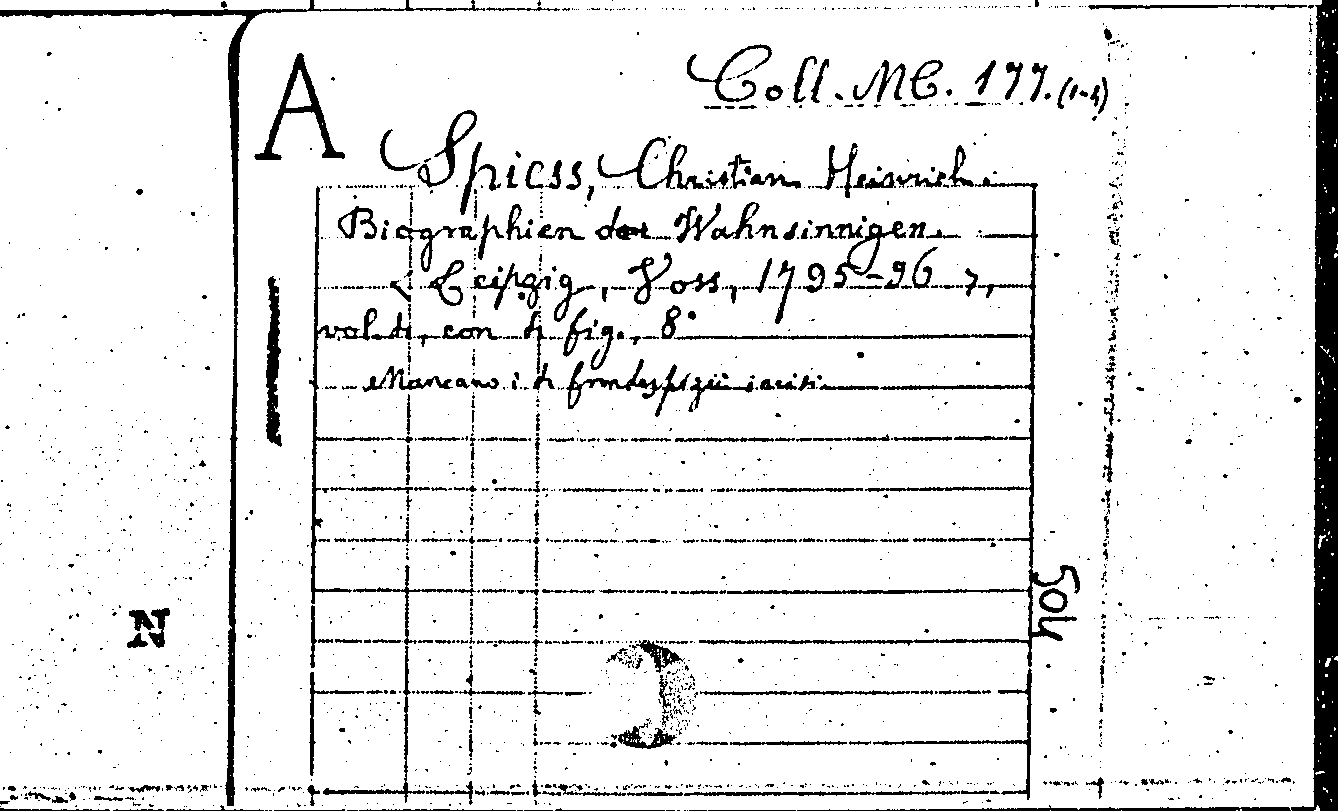 A
Coll. MC. 177. (1-4)
Spiess, Christian Heinrich.
Biographien der Wahnsinnigen.
< Leipzig, Voss, 1795-96 >,
vol. 4, con 4 fig., 8°
Mancano i 4 incisi.
504
N